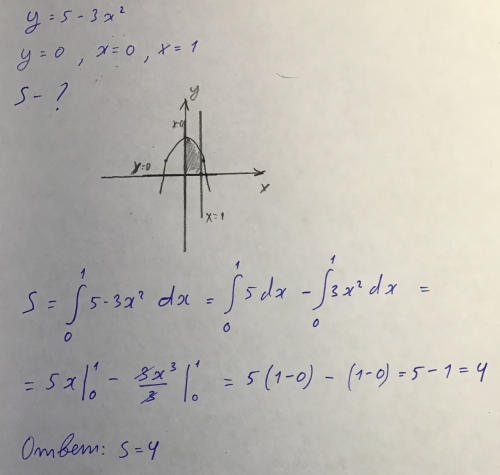 y = 5 - 3x²
y = 0 , x = 0 , x = 1
S - ?
y
x=0
y=0
x
x=1
S = ∫₀¹ 5-3x² dx = ∫₀¹ 5dx - ∫₀¹ 3x² dx =
= 5x|₀¹ - 3x³/3|₀¹ = 5(1-0) - (1-0) = 5-1 = 4
Ответ: S=4